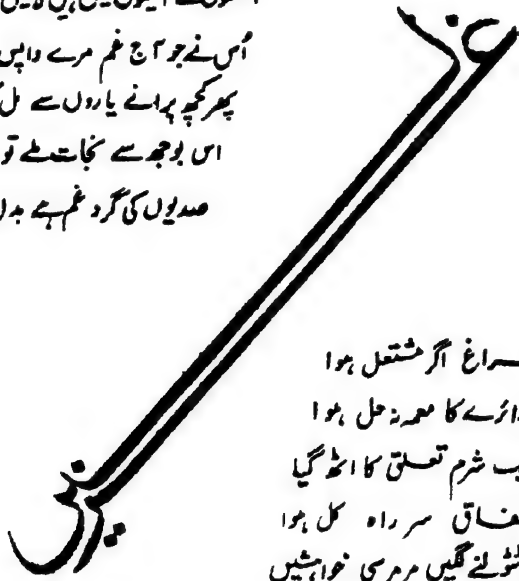 اُس نے جو آج غم مرے واپس
پھر کچھ پرانے یاروں سے
اس بوجھ سے نجات ملے تو
صدیوں کی گرد غم ہے
غزلیں
اگر مشتعل ہوا
دائرے کا معمہ نہ حل ہوا
شرم تعلق کا اٹھ گیا
سر راہ کل ہوا
ٹٹولنے لگیں مرمر سی خواہشیں